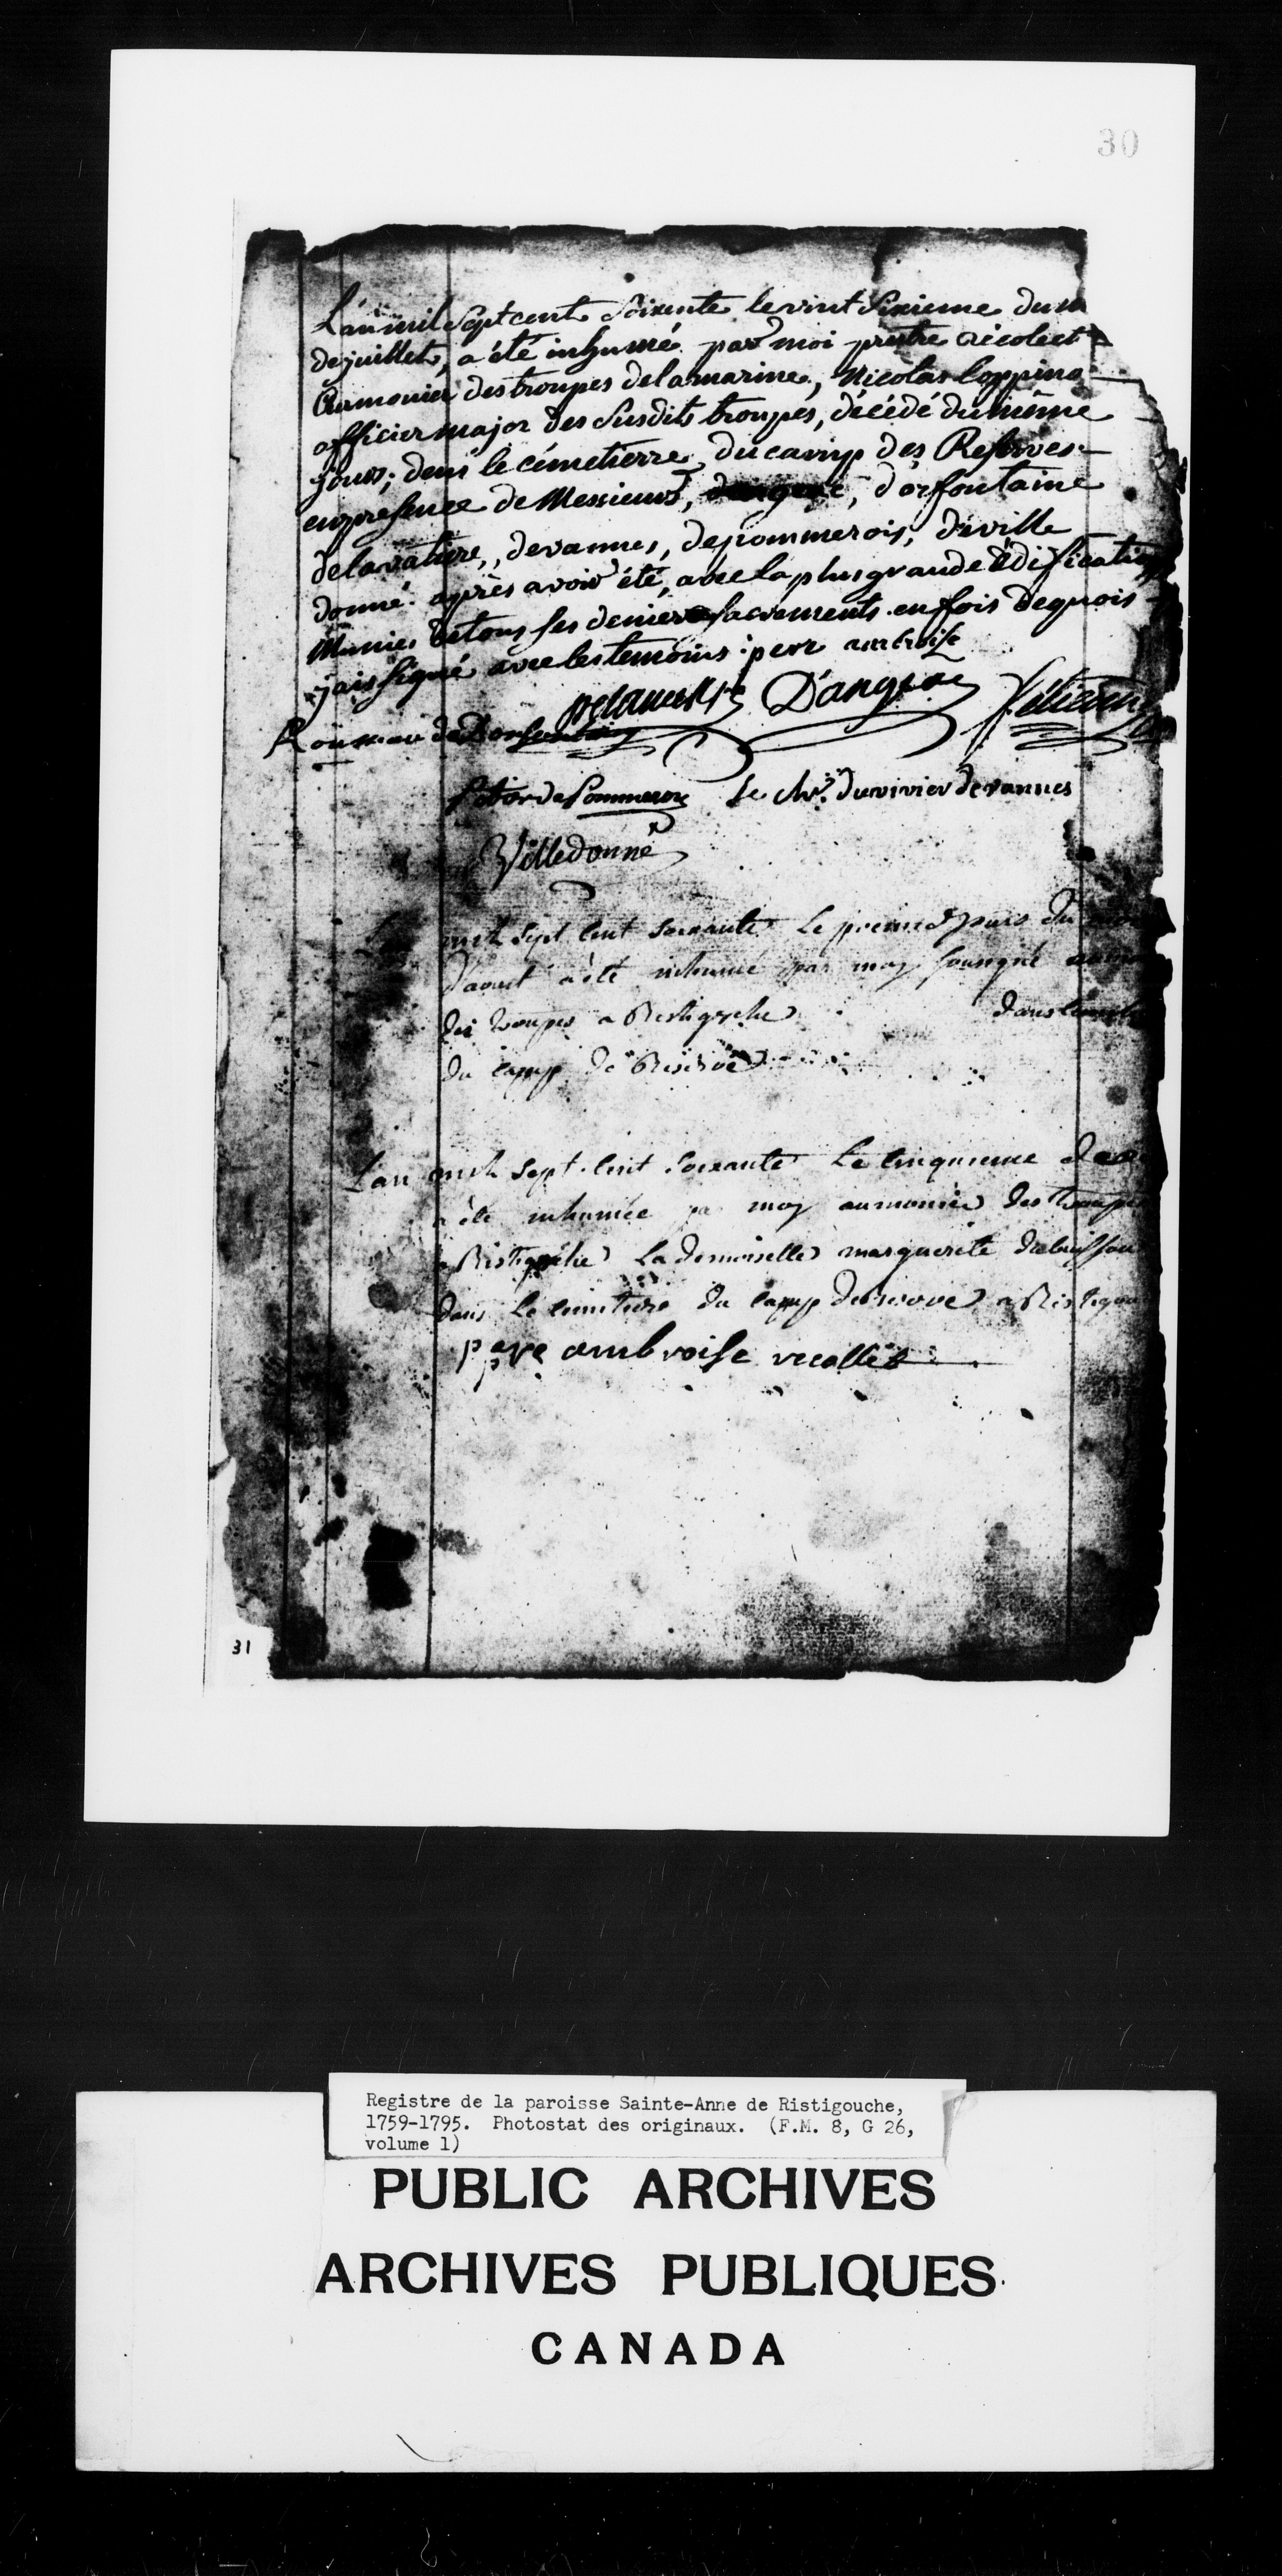 30
L'an mil sept cent soixente le vint sixieme du m
de juillet, a été inhumé par moi prestre récolect
Aumonier des troupes de la marine, Nicolas Coppino
officier major des susdits troupes, décédé du même
jours; dens le cémetierre du camp des Reserves
en presence de Messieurs, dorfontaine
de lavatiere, devannes, depommerois, deville
donné après avoir été, avec la plus grande édification
Munies de tous ses deniers sacrements en fois de quois
jais signé avec les temoins : perr ambroise
D'angeac
Rousseau de Dorfontaine
Le chr. duvivier devannes
Villedonné
mil sept cent soixante Le premier jours du
d'aout a été inhumé par moy sousigné
des troupes a Ristigoche dans
du camp de Reserve
L'an mil sept cent soixante Le cinquieme
a été inhumée pa moy aumonier des troupes
a Ristigoche La demoiselle marguerite
dans Le cimetiere du camp de reserve a Ristigou
pere ambroise recollet
31
Registre de la paroisse Sainte-Anne de Ristigouche,
1759-1795. Photostat des originaux. (F.M. 8, G 26,
volume 1)
PUBLIC ARCHIVES
ARCHIVES PUBLIQUES
CANADA